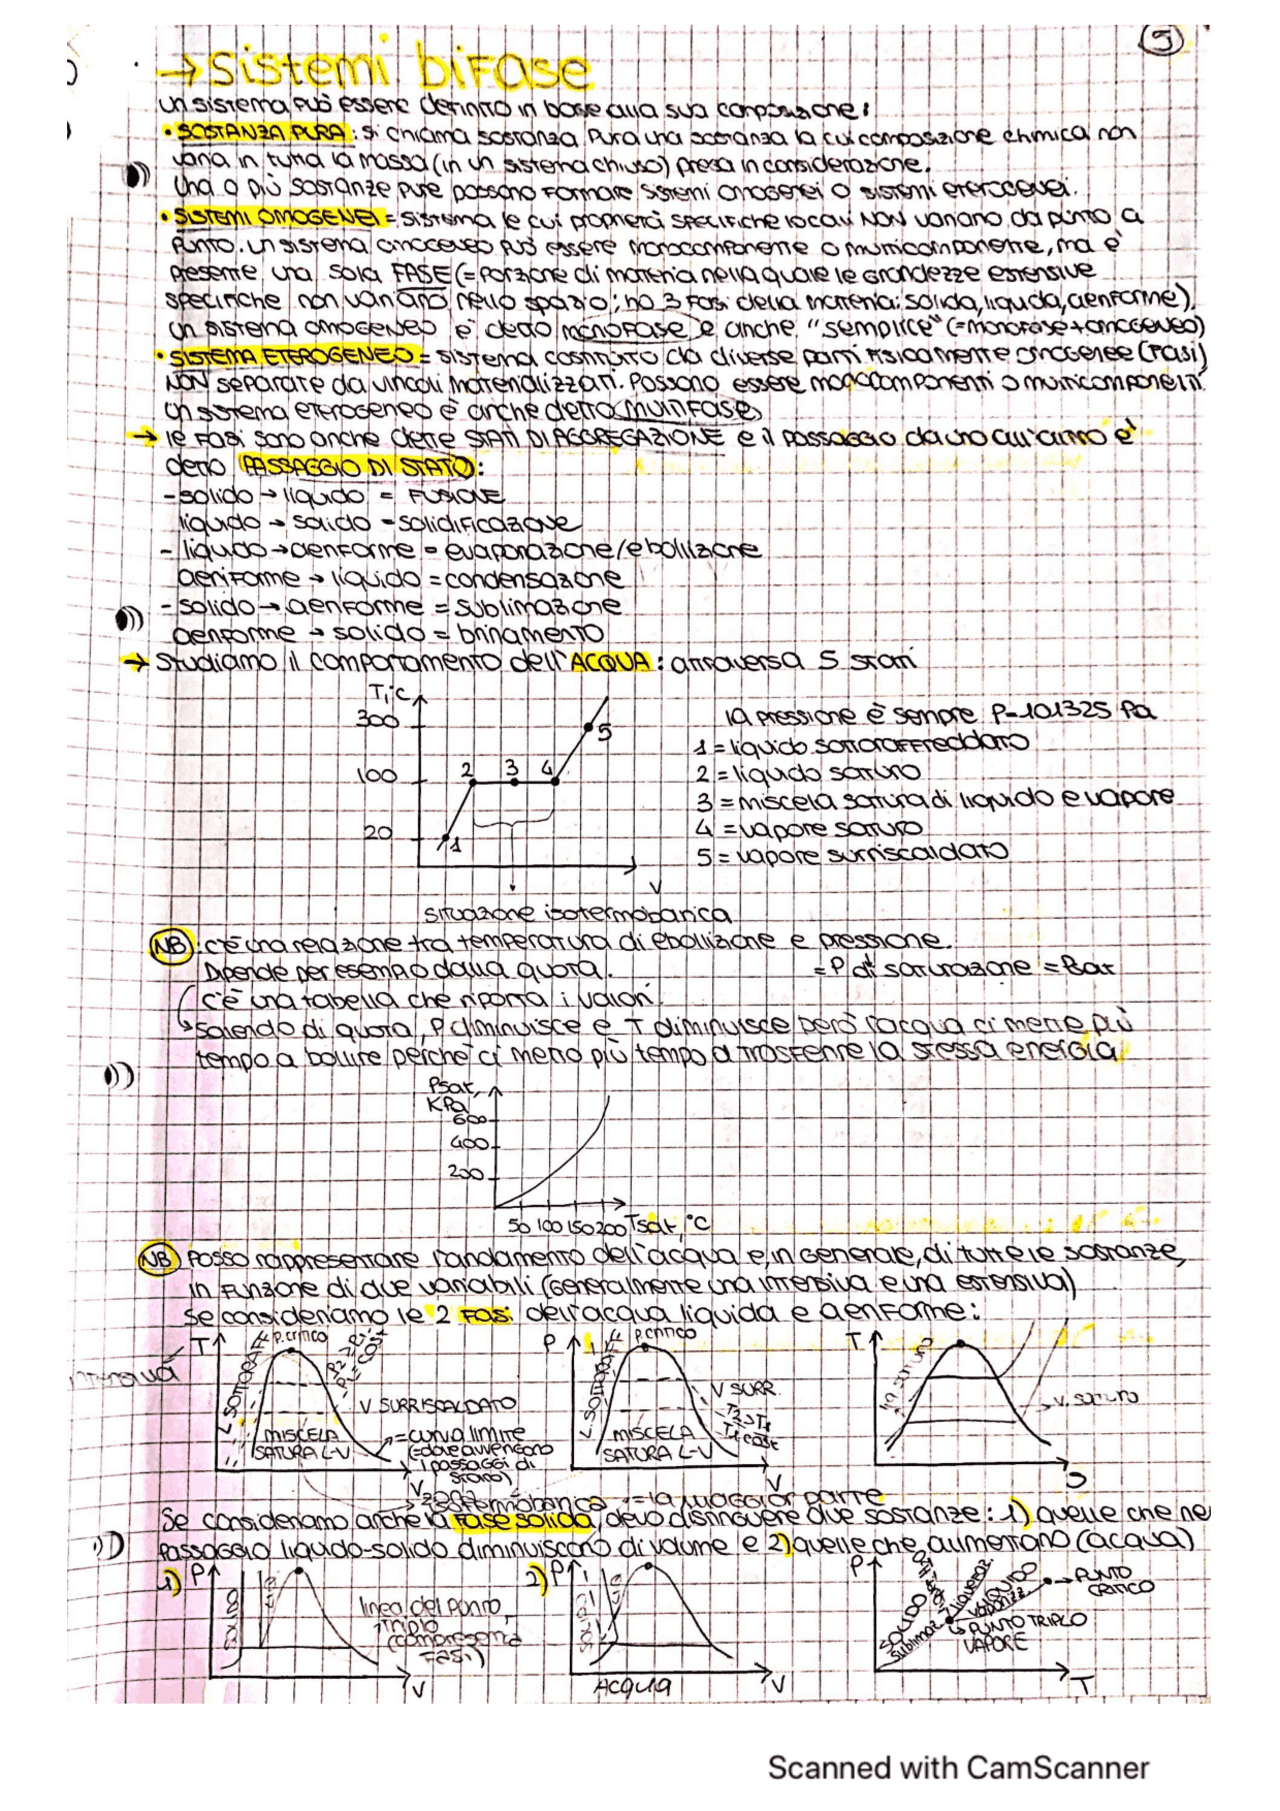 5
→ Sistemi bifase
un sistema può essere definito in base alla sua composizione:
• SOSTANZA PURA: si chiama sostanza pura una sostanza la cui composizione chimica non
varia in tutta la massa (in un sistema chiuso) presa in considerazione.
Una o più sostanze pure possono formare sistemi omogenei o sistemi eterogenei.
• SISTEMI OMOGENEI = sistema le cui proprietà specifiche locali NON variano da punto a
punto. un sistema omogeneo può essere monocomponente o multicomponente, ma è
presente una sola FASE (= porzione di materia nella quale le grandezze estensive
specifiche non variano nello spazio; ho 3 fasi della materia: solida, liquida, aeriforme).
un sistema omogeneo è detto monofase e anche "semplice" (= monofase + omogeneo)
• SISTEMA ETEROGENEO = sistema costituito da diverse parti fisicamente omogenee (fasi)
NON separate da vincoli materializzati. Possono essere monocomponenti o multicomponenti.
un sistema eterogeneo è anche detto multifase.
→ le fasi sono anche dette STATI DI AGGREGAZIONE e il passaggio da uno all'altro è
detto PASSAGGIO DI STATO:
- solido → liquido = FUSIONE
liquido → solido = solidificazione
- liquido → aeriforme = evaporazione/ebollizione
aeriforme → liquido = condensazione
- solido → aeriforme = sublimazione
aeriforme → solido = brinamento
→ Studiamo il comportamento dell'ACQUA: attraversa 5 stati
T,°C
300
100
20
1
2
3
4
5
V
situazione isotermobarica
la pressione è sempre P=101325 Pa
1 = liquido sottoraffreddato
2 = liquido saturo
3 = miscela satura di liquido e vapore
4 = vapore saturo
5 = vapore surriscaldato
NB: c'è una relazione tra temperatura di ebollizione e pressione.
Dipende per esempio dalla quota. = P di saturazione = Psat
c'è una tabella che riporta i valori.
Salendo di quota, P diminuisce e T diminuisce però l'acqua ci mette più
tempo a bollire perché ci metto più tempo a trasferire la stessa energia
Psat, KPa
600
400
200
50 100 150 200 Tsat, °C
NB Posso rappresentare l'andamento dell'acqua e, in generale, di tutte le sostanze,
in funzione di due variabili (generalmente una intensiva e una estensiva)
Se consideriamo le 2 FASI dell'acqua liquida e aeriforme:
intensiva
T
L SOTTORAFF.
p. critico
P2 > P1
P1 = cost
V SURRISCALDATO
MISCELA
SATURA L-V
= curva limite
(= dove avvengono
i passaggi di
stato)
V
→ zona isotermobarica = la maggior parte
P
L SOTTORAFF.
p. critico
V SURR.
T2 > T1
T1 cost
MISCELA
SATURA L-V
V
T
liq saturo
→ V. saturo
Se consideriamo anche la fase solida, devo distinguere due sostanze: 1) quelle che nel
passaggio liquido-solido diminuiscono di volume e 2) quelle che aumentano (acqua)
1) P
linea del punto
triplo
(compresenza
Fasi)
V
2) P
ACQUA
V
P
SOLIDO
LIQUIDO
→ PUNTO
CRITICO
sublimaz.
vaporizz.
→ PUNTO TRIPLO
VAPORE
T
Scanned with CamScanner